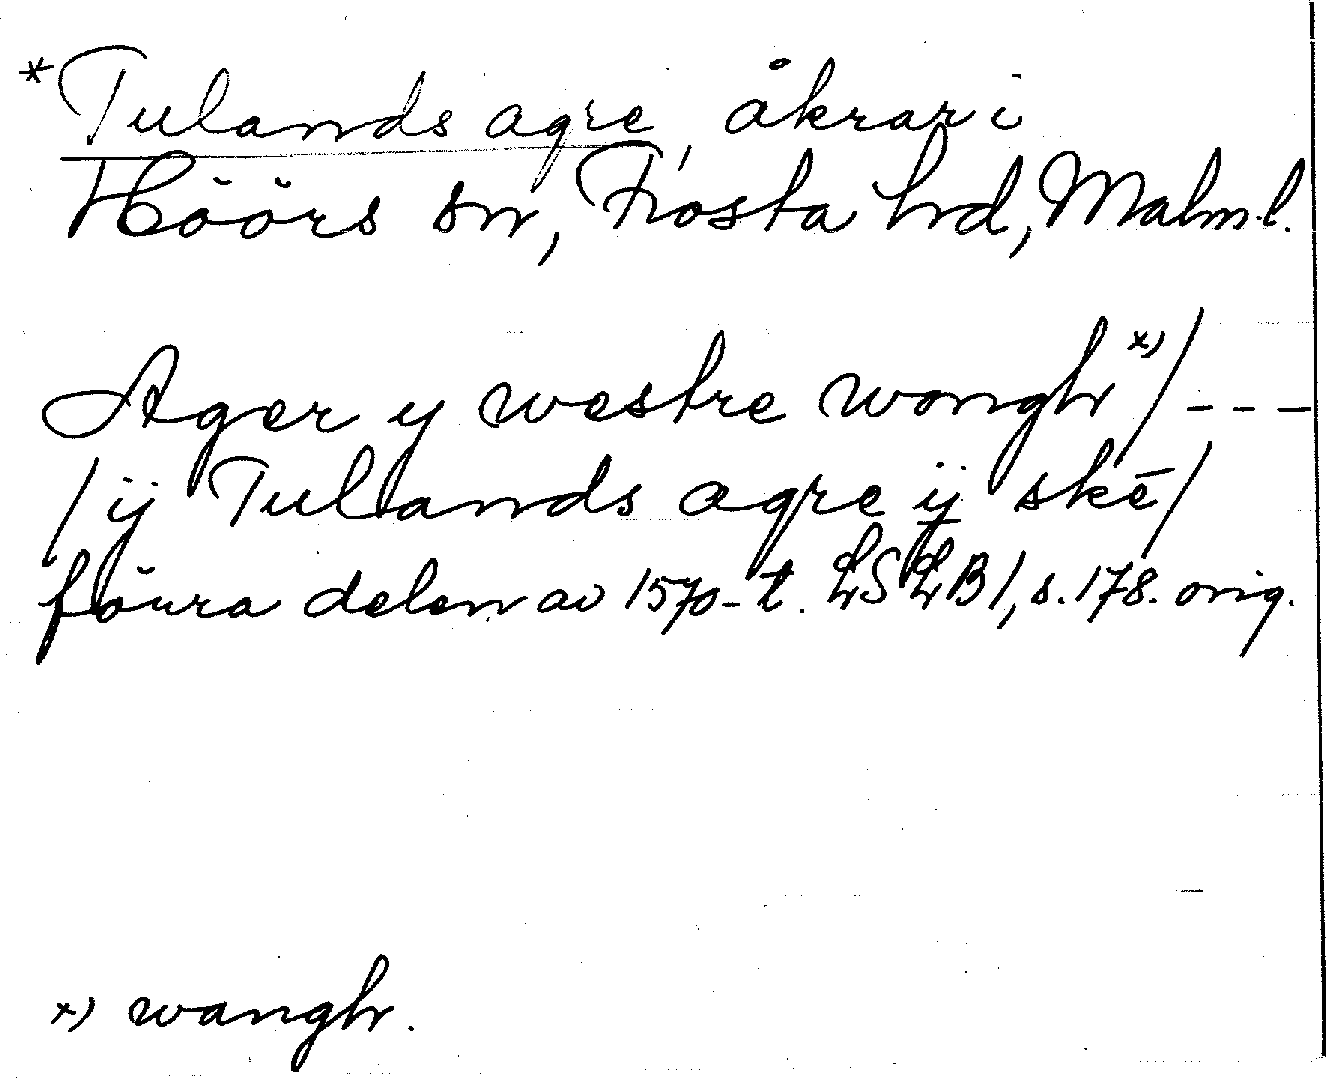 *Tulands agre, åkrar i
Höörs sn, Frosta hrd, Malm.l.
Ager y westre wongh *) / - - -
/ ij Tulands agre ij skē /
förra delen av 1570-t. LSLB1, s. 178. orig.
x) wangh.